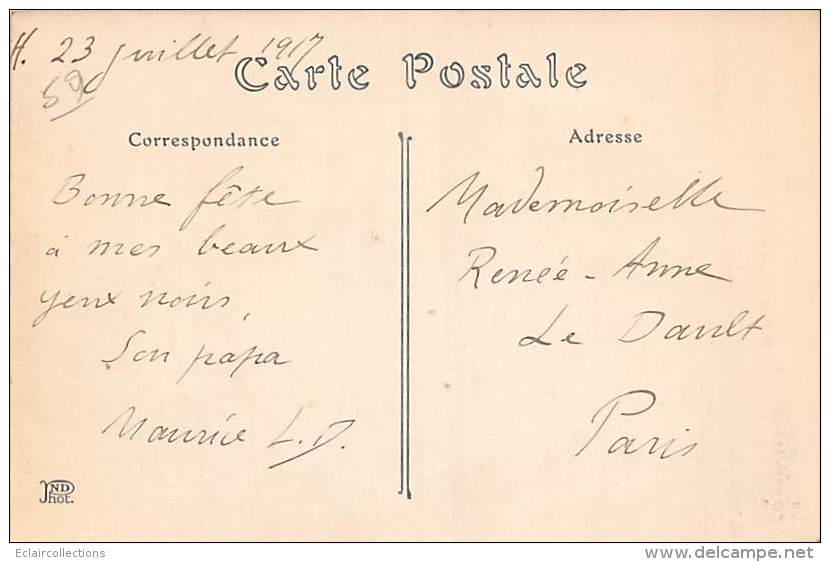 H. 23 juillet 1917
59
Carte Postale
Correspondance
Bonne fête
à mes beaux
yeux noirs,
Son papa
Maurice L. D.
ND
Phot.
Adresse
Mademoiselle
Renée-Anne
Le Dault
Paris
Eclaircollections
www.delcampe.net